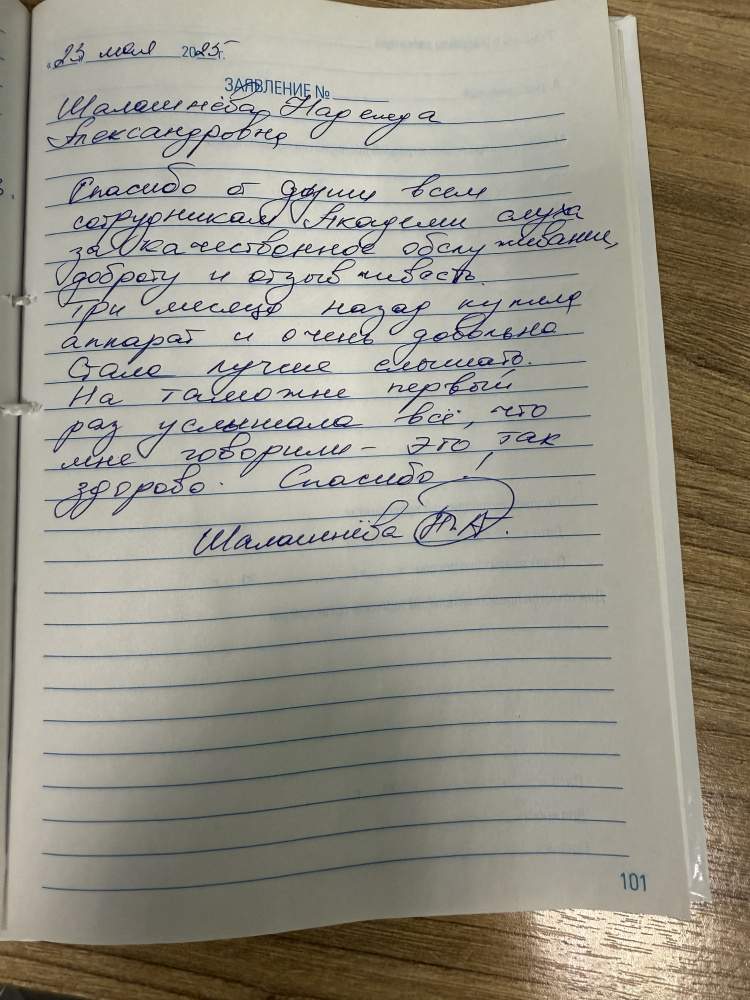 «23» мая 2025г.
ЗАЯВЛЕНИЕ №
Шалашнёва Надежда
Александровна
Спасибо от души всем
сотрудникам Академи слуха
за качественное обслуживание,
доброту и отзывчивость.
Три месяца назад купила
аппарат и очень довольна
Стала лучше слышать.
На таможне первый
раз услышала всё, что
мне говорили - это так
здорово. Спасибо!
Шалашнёва Н.А.
101